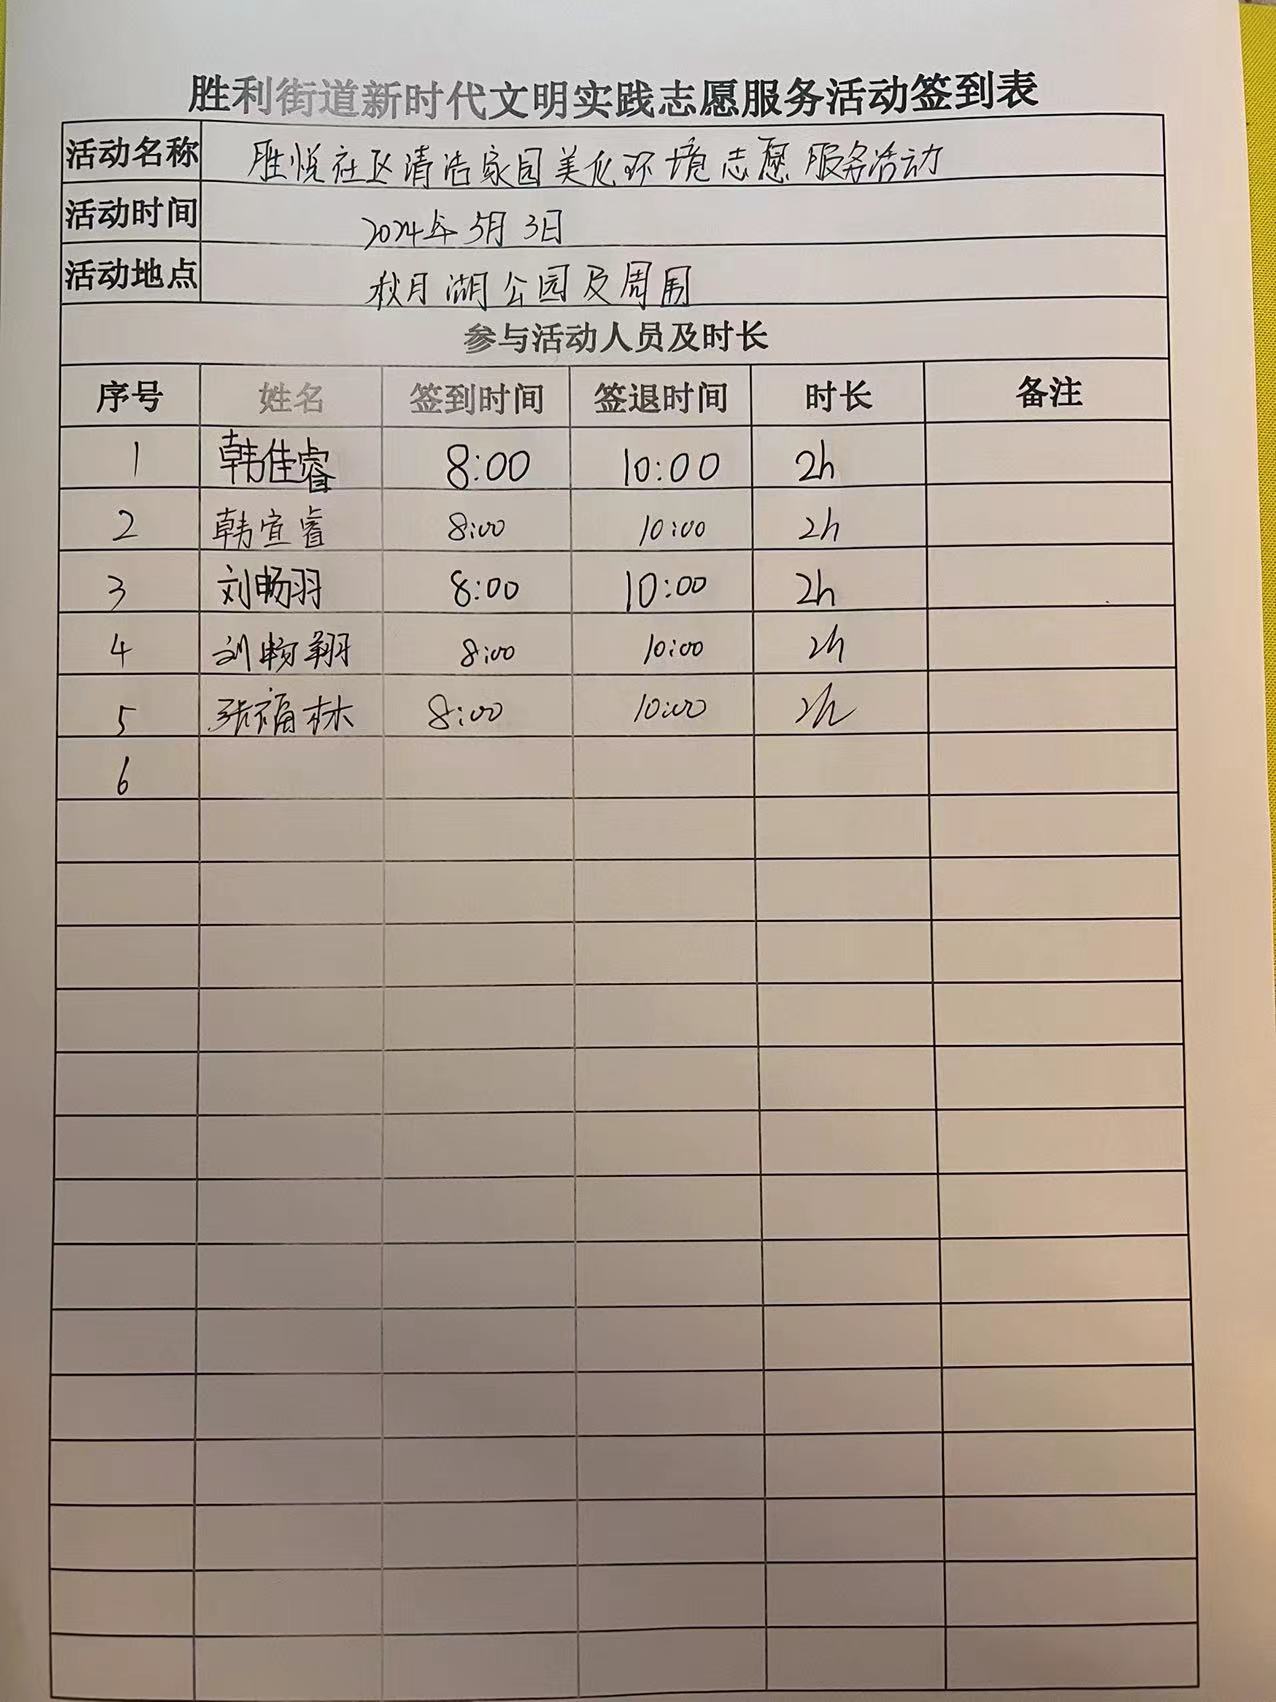 胜利街道新时代文明实践志愿服务活动签到表
活动名称 胜悦社区清洁家园美化环境志愿服务活动
活动时间 2024年5月3日
活动地点 秋月湖公园及周围
参与活动人员及时长
序号 姓名 签到时间 签退时间 时长 备注
1 韩佳睿 8:00 10:00 2h
2 韩宣睿 8:00 10:00 2h
3 刘畅羽 8:00 10:00 2h
4 刘畅翔 8:00 10:00 2h
5 张福林 8:00 10:00 2h
6